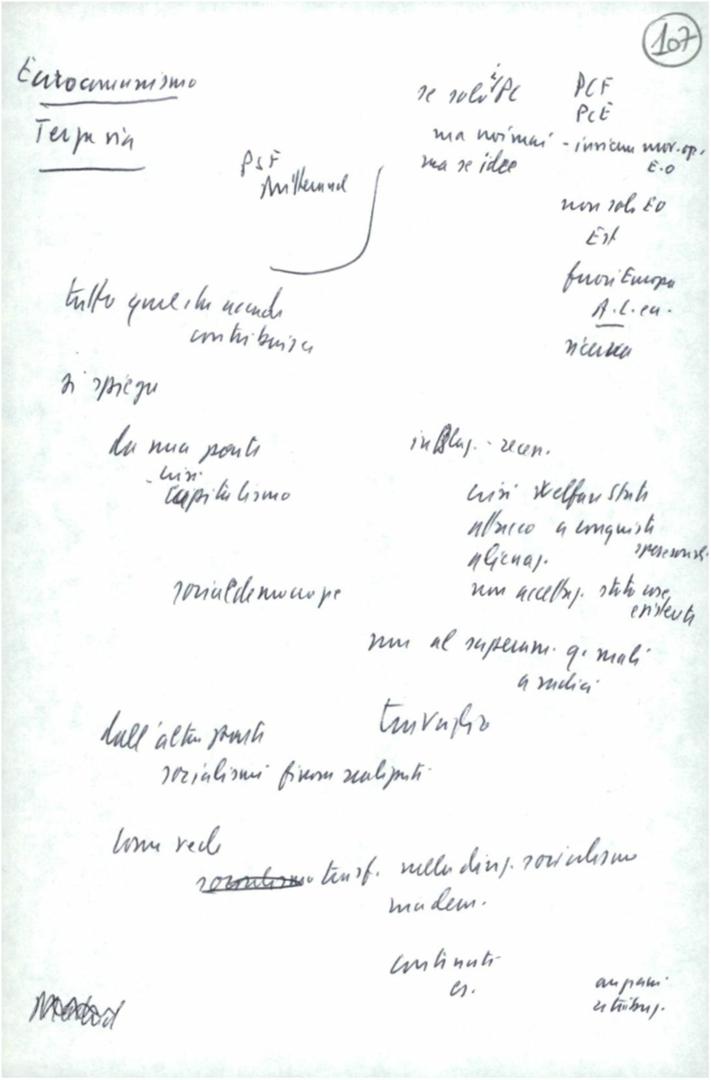 107
Eurocomunismo
Terza via
PSF
Mitterrand
se solo i PC
ma noi mai
ma se idee
PCF
PCE
- insieme mov. op.
E.O
non solo EO
Est
fuori Europa
A.L. ecc.
ricerca
tutto quel che accade
contribuisce
si spiega
da una parte
- crisi
capitalismo
socialdemocrazie
recen.
crisi Welfare State
attacco a conquiste
alienaz.
non accettaz. stato cose
esistente
non al superam. q. mali
a radici
dall'altra parte
travaglio
socialismi finora realizzati
come vede
transf. nella direz. socialismo
ma dem.